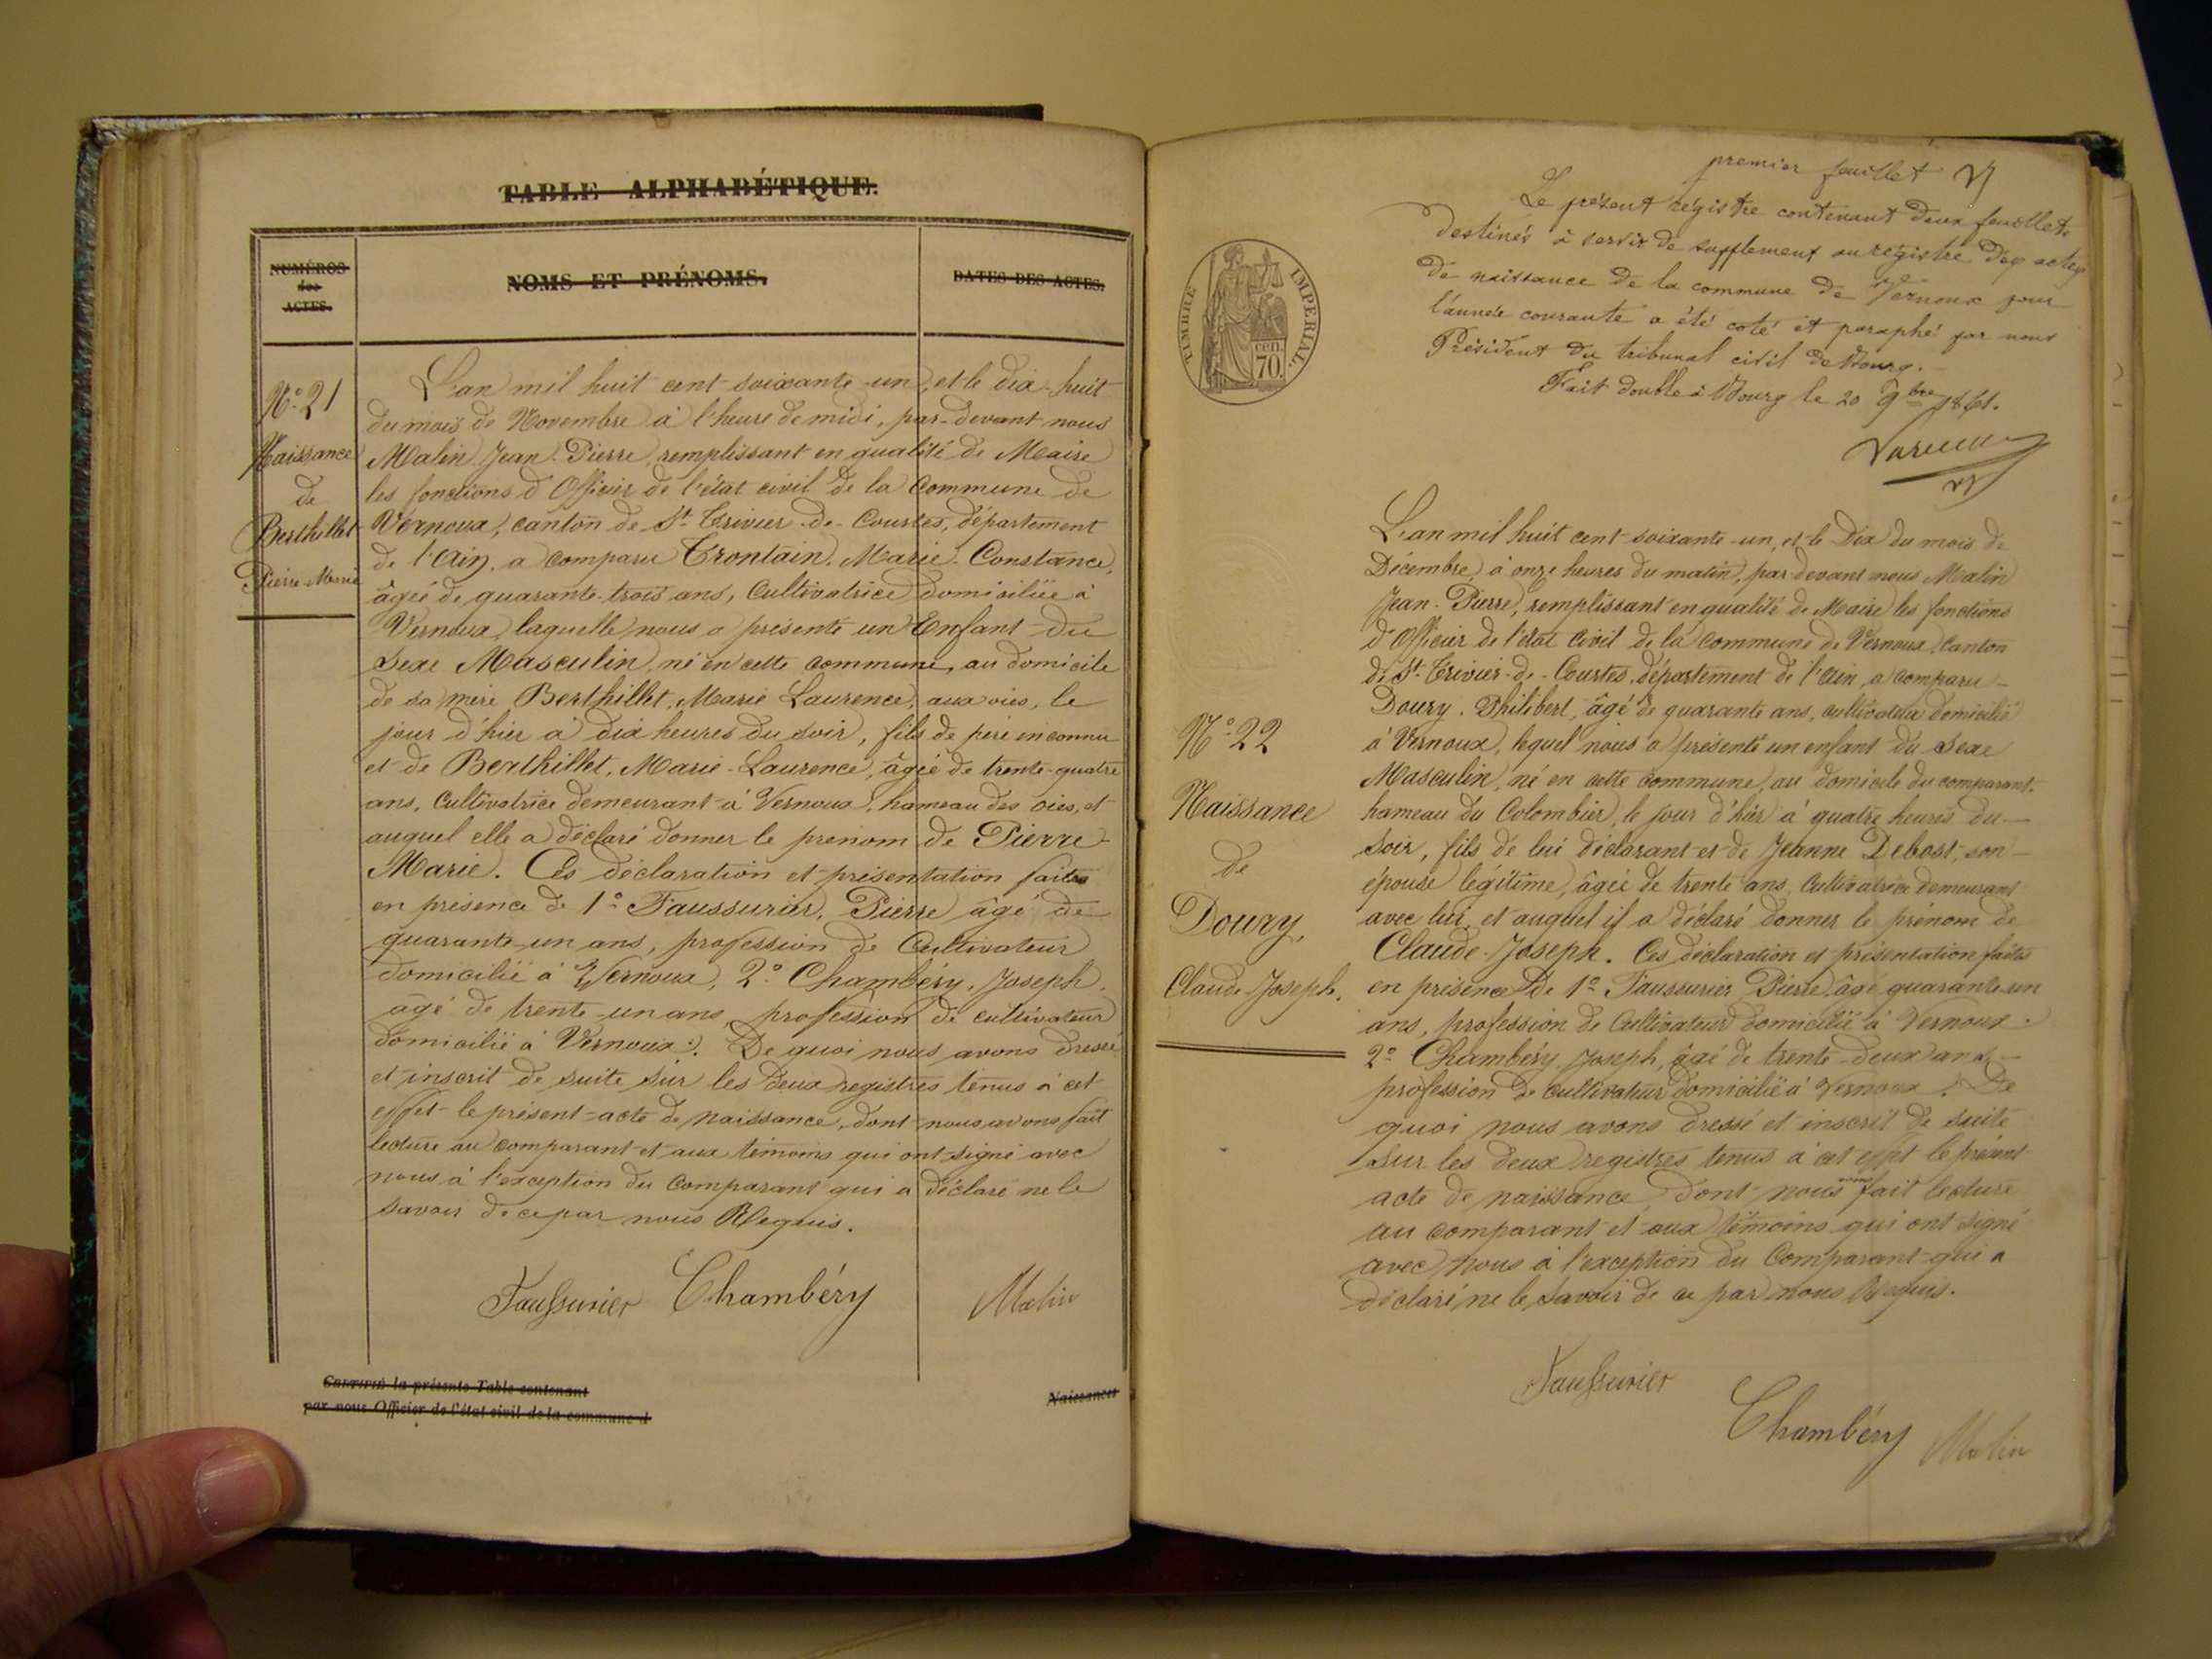 TABLE ALPHABÉTIQUE.
NUMÉROS
des
ACTES.
NOMS ET PRÉNOMS.
DATES DES ACTES.
N.º 21
Naissance
de
Berthillet
Pierre-Marie
L'an mil huit cent soixante-un, et le dix-huit
du mois de Novembre à l'heure de midi, par-devant nous
Malin Jean-Pierre, remplissant en qualité de Maire
les fonctions d'Officier de l'état civil de la Commune de
Vernoux, canton de St Trivier-de-Courtes, département
de l'Ain, a comparu Trontain, Marie-Constance,
âgée de quarante-trois ans, Cultivatrice domiciliée à
Vernoux, laquelle nous a présenté un Enfant du
Sexe Masculin, né en cette commune, au domicile
de sa mère Berthillet, Marie Laurence, aux oies, le
jour d'hier à dix heures du soir, fils de père inconnu
et de Berthillet, Marie-Laurence, âgée de trente-quatre
ans, Cultivatrice demeurant à Vernoux, hameau des oies, et
auquel elle a déclaré donner le prénom de Pierre-
Marie. Ces déclaration et présentation faites
en présence de 1º Faussurier, Pierre âgé de
quarante-un ans, profession de Cultivateur
domicilié à Vernoux, 2º Chambéry, Joseph,
âgé de trente-un ans, profession de cultivateur
domicilié à Vernoux. De quoi nous avons dressé
et inscrit de suite sur les deux registres tenus à cet
effet le présent acte de naissance, dont nous avons fait
lecture au comparant et aux témoins qui ont signé avec
nous à l'exception du Comparant qui a déclaré ne le
savoir de ce par nous Requis.
Faussurier Chambéry Malin
CERTIFIÉ la présente Table contenant
par nous Officier de l'état civil de la commune d
Naissances
premier feuillet
Le présent régistre contenant deux feuillets
destinés à servir de supplement au régistre des actes
de naissance de la commune de Vernoux pour
l'année courante a été coté et paraphé par nous
Président du tribunal civil de Bourg.
Fait double à Bourg le 20 9bre 1861.
TIMBRE IMPERIAL.
cen
70.
N.º 22
Naissance
de
Doury,
Claude-Joseph.
L'an mil huit cent soixante-un, et le Dix du mois de
Décembre, à onze heures du matin, par-devant nous Malin
Jean-Pierre, remplissant en qualité de Maire les fonctions
d'Officier de l'état civil de la commune de Vernoux, canton
de St Trivier-de-Courtes, département de l'Ain, a comparu
Doury, Philibert, âgé de quarante ans, cultivateur domicilié
à Vernoux, lequel nous a présenté un enfant du Sexe
Masculin, né en cette commune, au domicile du comparant,
hameau du Colombier, le jour d'hier à quatre heures du
soir, fils de lui déclarant et de Jeanne Debost, son
épouse légitime, âgée de trente ans, Cultivatrice demeurant
avec lui, et auquel il a déclaré donner le prénom de
Claude-Joseph. Ces déclaration et présentation faites
en présence de 1º Faussurier Pierre, âgé quarante-un
ans, profession de Cultivateur domicilié à Vernoux.
2º Chambéry, Joseph, âgé de trente-deux ans,
profession de cultivateur domicilié à Vernoux. De
quoi nous avons dressé et inscrit de suite
sur les deux registres tenus à cet effet le présent
acte de naissance, dont nous avons fait lecture
au comparant et aux témoins qui ont signé
avec nous à l'exception du Comparant qui a
déclaré ne le savoir de ce par nous Requis.
Faussurier
Chambéry Malin